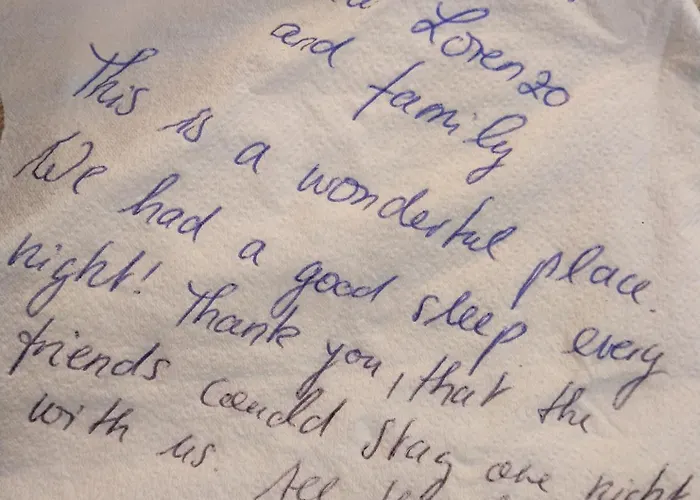 Lorenzo
and family
This is a wonderful place.
We had a good sleep every
night! Thank you, that the
friends could stay one night
with us.